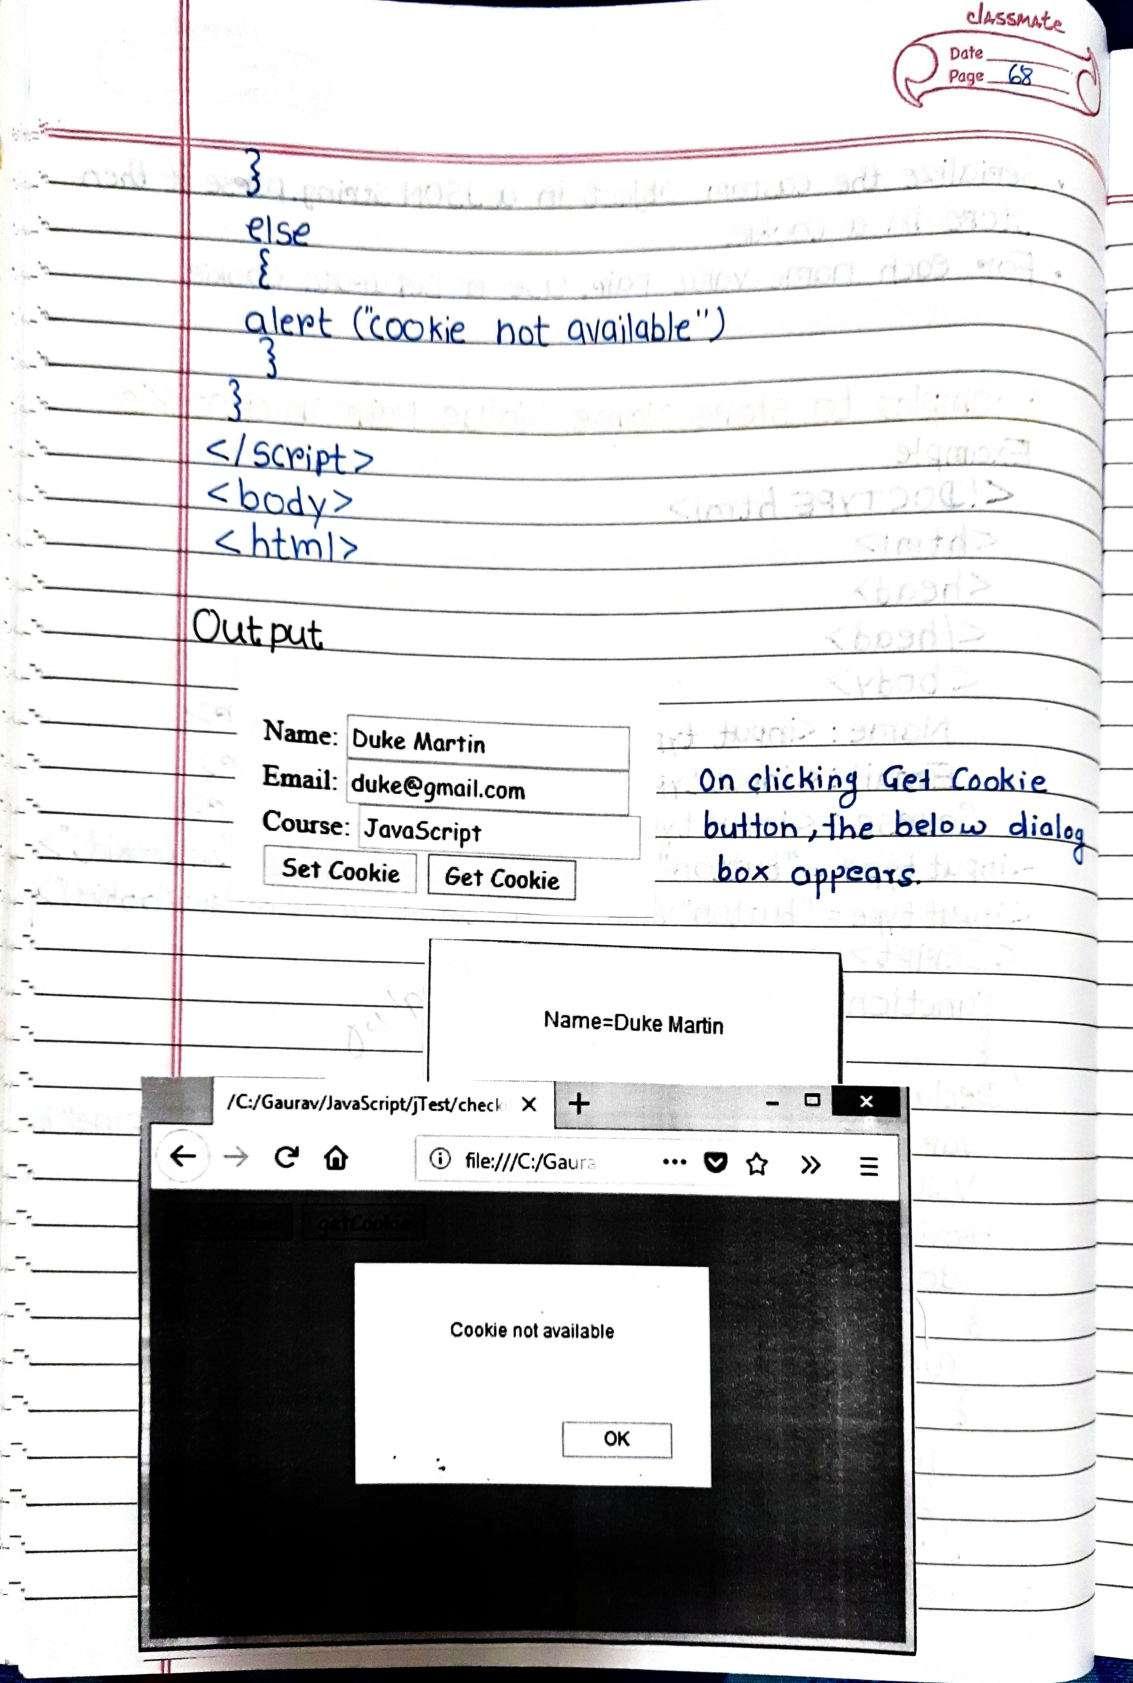 classmate
Date
Page 68
}
else
{
alert ("cookie not available")
}
}
</script>
<body>
<html>
Output
Name: Duke Martin
Email: duke@gmail.com
Course: JavaScript
Set Cookie Get Cookie
On clicking Get Cookie
button, the below dialog
box appears.
Name=Duke Martin
/C:/Gaurav/JavaScript/jTest/check
file:///C:/Gaura
getCookie
Cookie not available
OK